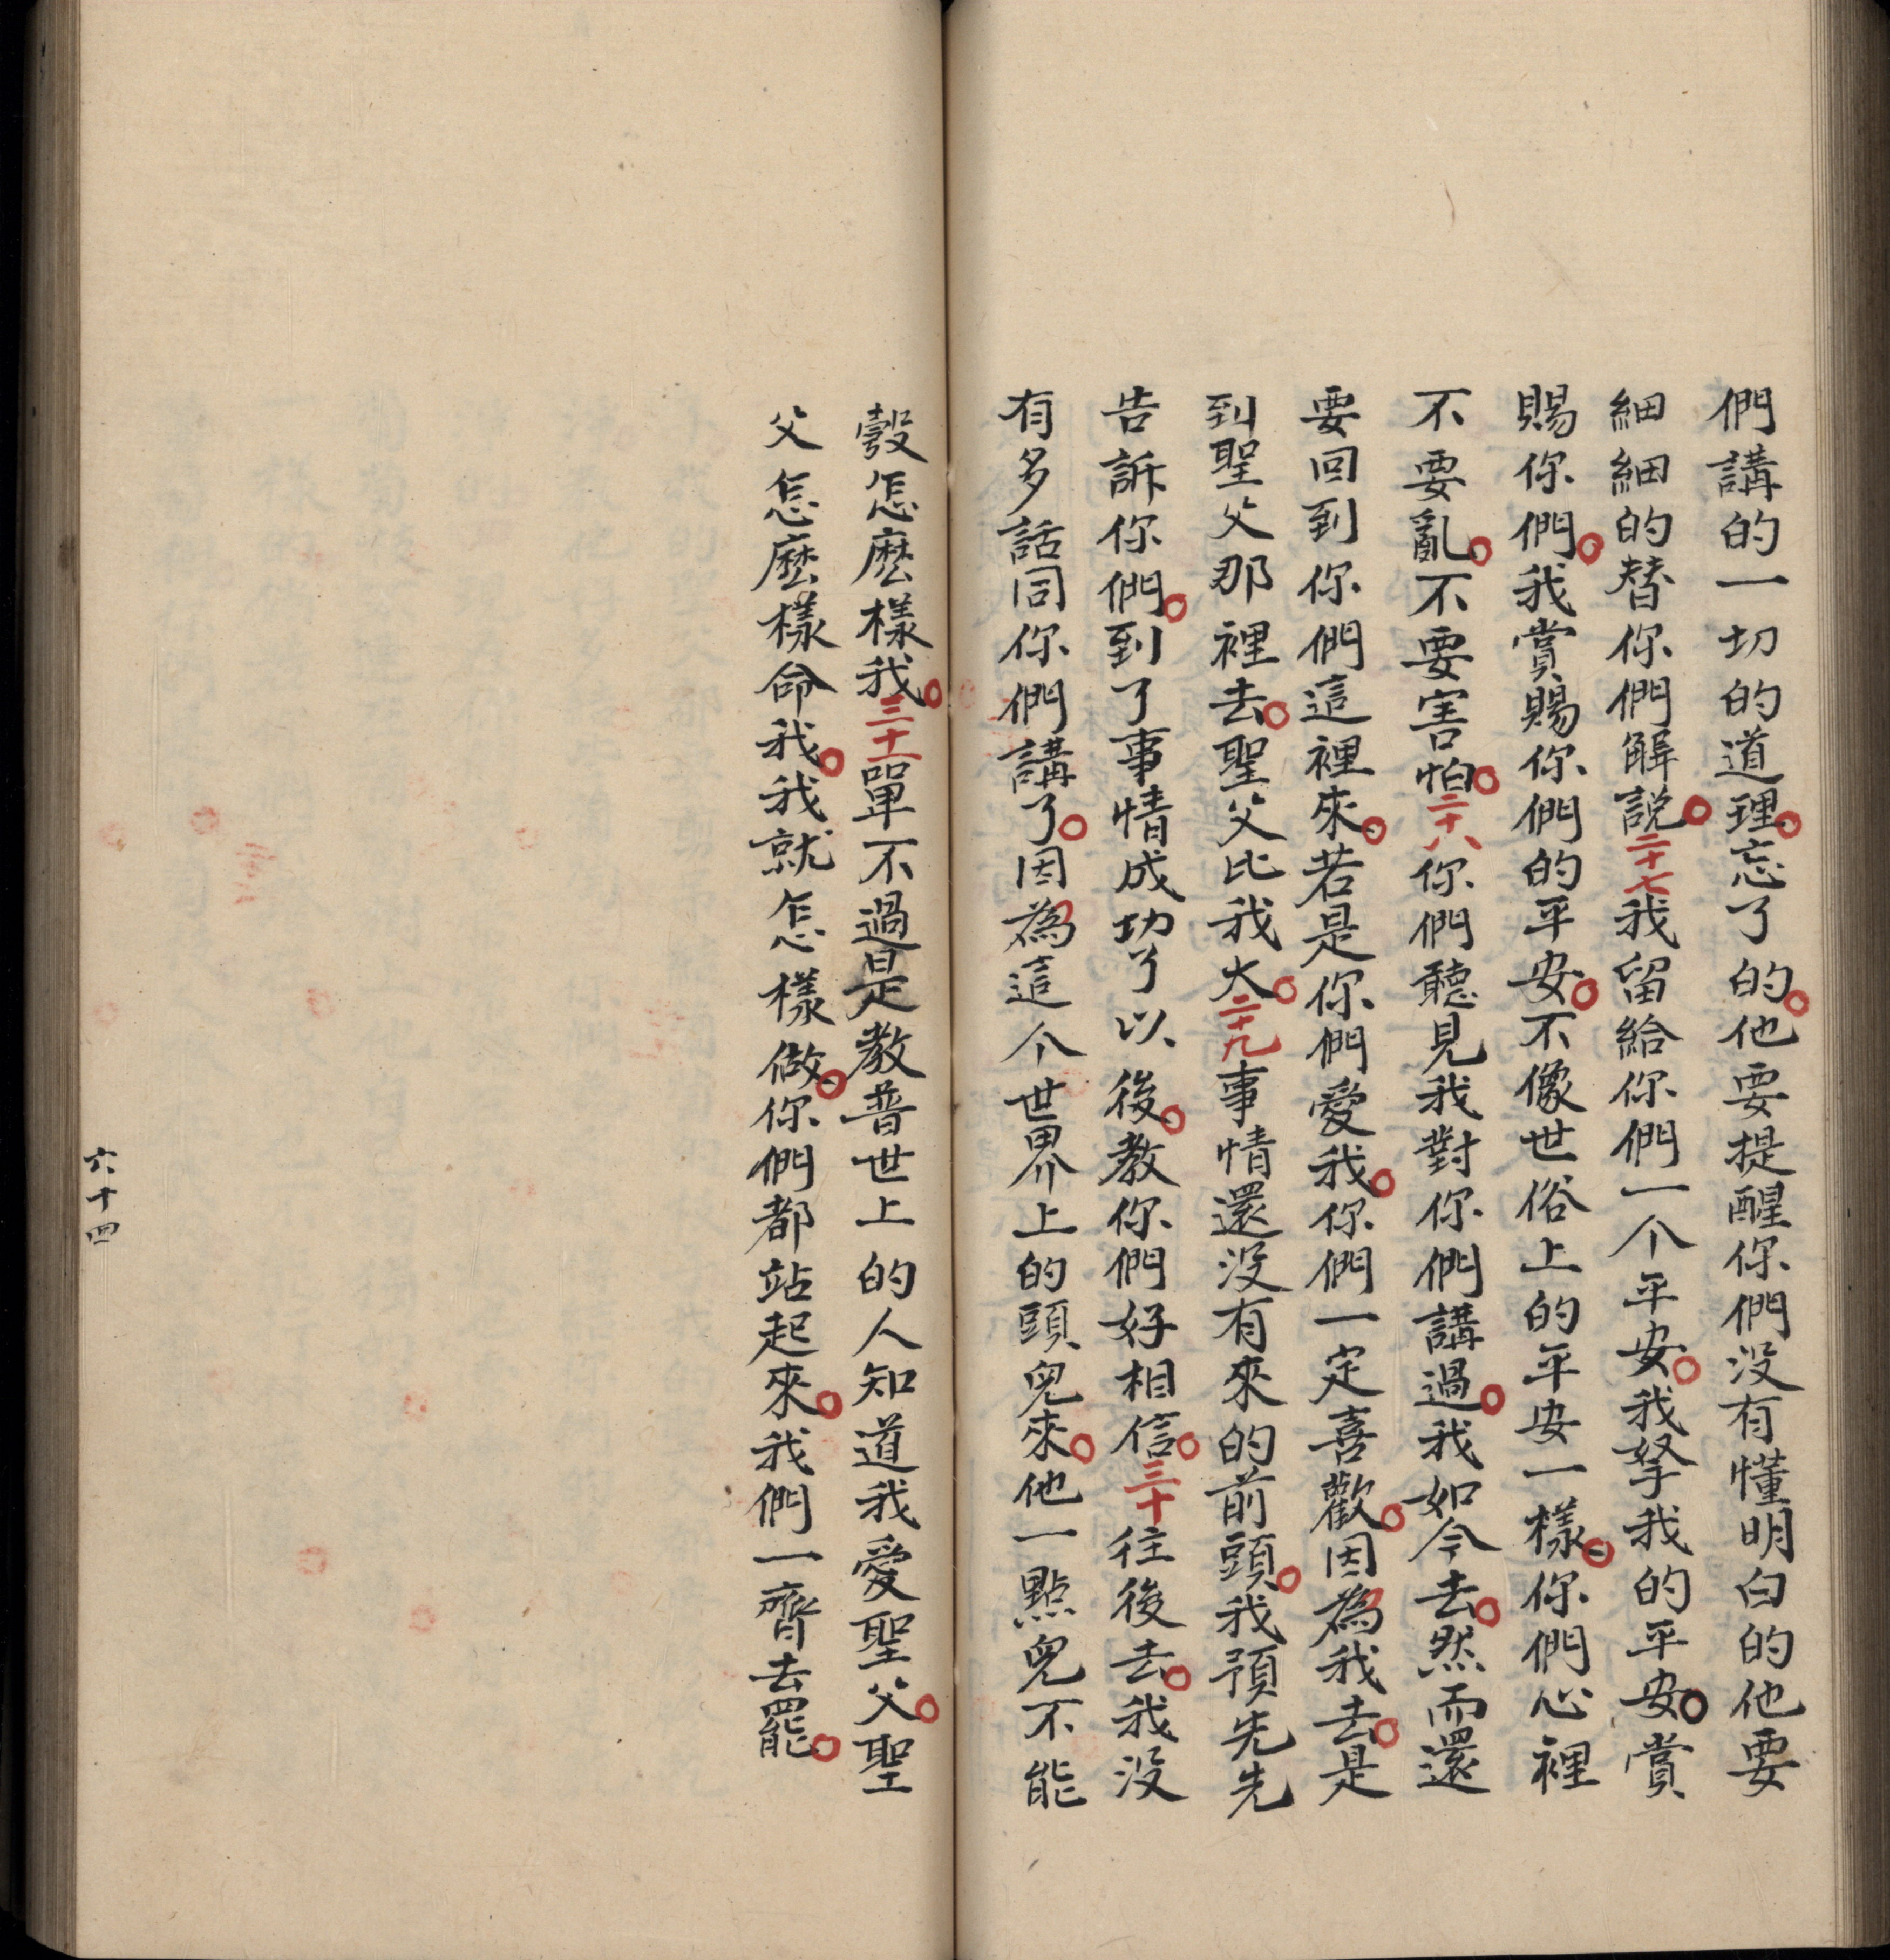 們講的一切的道理。忘了的。他要提醒你們没有懂明白的他要
細細的替你們解説。二十七我留給你們一个平安。我拏我的平安。賞
賜你們。我賞賜你們的平安。不像世俗上的平安一樣。你們心裡
不要亂。不要害怕。二十八你們聽見我對你們講過。我如今去。然而還
要回到你們這裡來。若是你們愛我。你們一定喜歡。因為我去。是
到聖父那裡去。聖父比我大。二十九事情還没有來的前頭。我預先先
告訴你們。到了事情成功了以後。教你們好相信。三十往後去。我没
有多話同你們講了。因為這个世界上的頭兒來。他一點兒不能
彀怎麽樣我。三十一單不過是教普世上的人知道我愛聖父。聖
父怎麽樣命我。我就怎樣做。你們都站起來。我們一齊去罷。
六十四